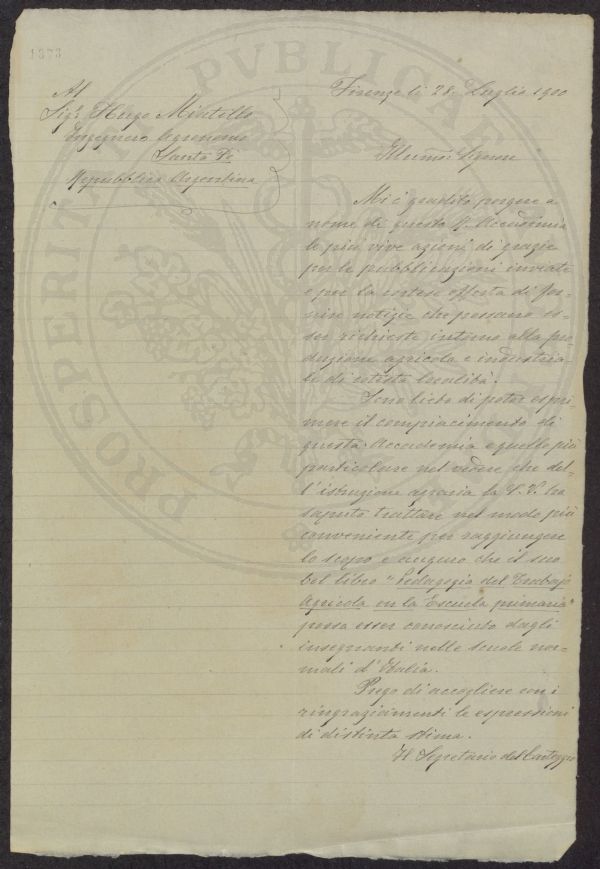 1373
Al
Sigr. Hugo Miatello
Ingegnere Agronomo
Santa Fè
Repubblica Argentina
Firenze lì 28. Luglio 1900
Illumo: Signore
Mi è gradito porgere a
nome di questa R. Accademia
le più vive azioni di grazie
per le pubblicazioni inviate
e per la cortese offerta di for-
nire notizie che possano es-
ser richieste intorno alla pro-
duzione agricola e industria-
le di cotesta località.
Sono lieto di poter espri-
mere il compiacimento di
questa Accademia e quello più
particolare nel vedere che del-
l'istruzione agraria la S. V. ha
saputo trattare nel modo più
conveniente per raggiungere
lo scopo e auguro che il suo
bel libro "Pedagogia del Trabajo
Agricola en la Escuela primaria"
possa esser conosciuto dagli
insegnanti nelle scuole nor-
mali d'Italia.
Prego di accogliere con i
ringraziamenti le espressioni
di distinta stima.
Il Segretario del Carteggio
PROSPERITATI PVBLICAE